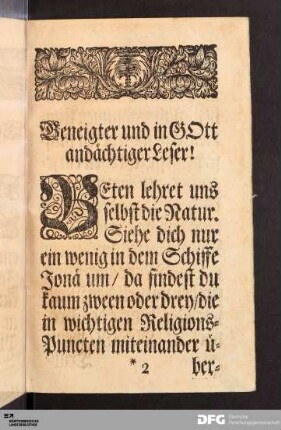 Geneigter und in GOtt
andächtiger Leser!
BEten lehret uns
selbst die Natur.
Siehe dich nur
ein wenig in dem Schiffe
Jonä um / da findest du
kaum zween oder drey / die
in wichtigen Religions-
Puncten miteinander ü-
* 2 ber-
WÜRTTEMBERGISCHE
LANDESBIBLIOTHEK
DFG Deutsche
Forschungsgemeinschaft